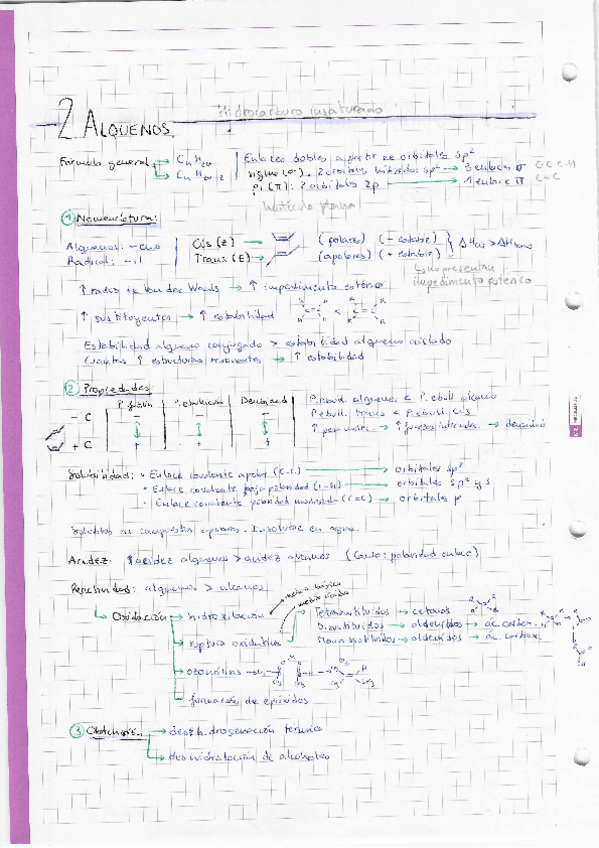 Hidrocarburo insaturado
2 ALQUENOS
Fórmula general → CnH2n
→ CnH2n-2
Enlaces dobles a partir de orbitales sp²
sigma (σ): 2 orbitales híbridos sp² → 3 enlaces σ C-C C-H
pi (π): 2 orbitales 2p → 1 enlace π C=C
molécula plana
① Nomenclatura:
Alquenos: -eno
Radical: -il
Cis (Z) → (polares) (- estable)
Trans (E) → (apolares) (+ estable)
ΔHcis > ΔHtrans
no presentan
impedimento estérico
↑ radio de Van der Waals → ↑ impedimento estérico
↑ sustituyentes → ↑ estabilidad
Estabilidad alqueno conjugado > estabilidad alqueno aislado
Cuantas ↑ estructuras resonantes → ↑ estabilidad
② Propiedades:
P. fusión P. ebullición Densidad
- C - - -
+ C + + +
P. ebull. alqueno < P. ebull. alcano
P. ebull. trans < P. ebull. cis
↑ peso molec. → ↑ fuerzas intermolec. → densidad
Solubilidad: • Enlace covalente apolar (C-C) → orbitales sp²
• Enlace covalente baja polaridad (C-H) → orbitales sp² y s
• Enlace covalente polaridad moderada (C=C) → orbitales p
Solubles en compuestos apolares. Insoluble en agua.
Acidez: ↑ acidez alquenos > acidez alcanos (Causa: polaridad enlace)
Reactividad: alquenos > alcanos
→ Oxidación → hidroxilación → medio básico
medio ácido
→ ruptura oxidativa
Tetrasustituidos → cetonas
Disustituidos → aldehídos → ác. carbox.
Monosustituidos → aldehídos → ác. carbox.
→ ozonólisis
→ formación de epóxidos
③ Obtención: → deshidrogenación térmica
→ deshidratación de alcoholes